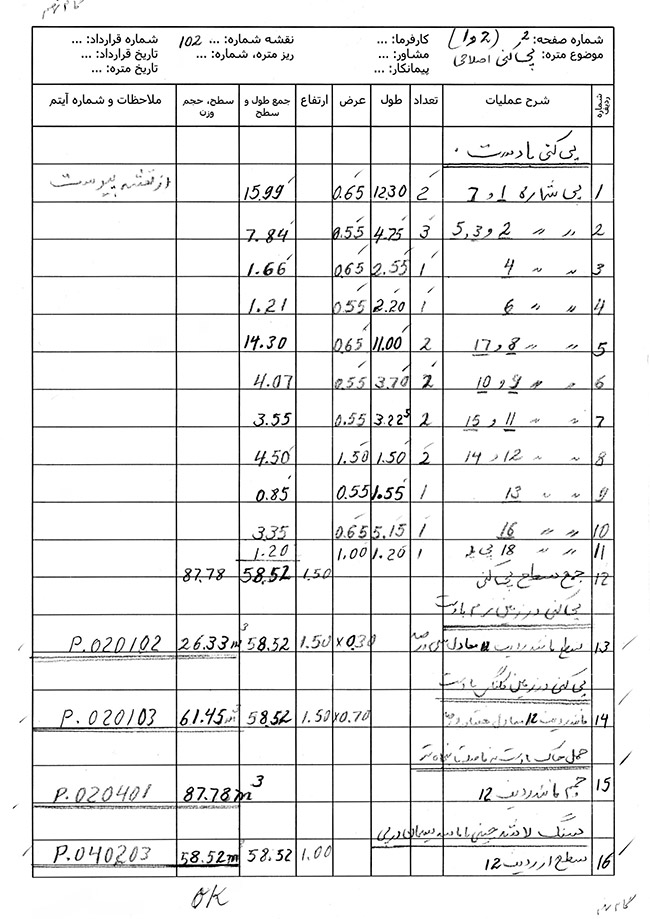 شماره صفحه: 2 (1 و 2) کارفرما: ... نقشه شماره: ... 102 شماره قرارداد: ...
موضوع متره: پی کنی اصلاحی مشاور: ... ریز متره، شماره: ... تاریخ قرارداد: ...
پیمانکار: ... تاریخ متره: ...
شماره ردیف شرح عملیات تعداد طول عرض ارتفاع جمع طول و سطح سطح، حجم وزن ملاحظات و شماره آیتم
پی کنی با دست .
1 پی شماره 1 و 7 2 12.30 0.65 15.99 از نقشه پیوست
2 " " 2 و 3, 5 3 4.75 0.55 7.84
3 " " 4 1 2.55 0.65 1.66
4 " " 6 1 2.20 0.55 1.21
5 " " 8 و 17 2 11.00 0.65 14.30
6 " " 9 و 10 2 3.70 0.55 4.07
7 " " 11 و 15 2 3.225 0.55 3.55
8 " " 12 و 14 2 1.50 1.50 4.50
9 " " 13 1 1.55 0.55 0.85
10 " " 16 1 5.15 0.65 3.35
11 " " 18 پی پله 1 1.20 1.00 1.20
12 جمع سطح پی کنی 1.50 58.52 87.78
پی کنی در زمین نرم با دست
13 سطح مانند ردیف 12 معادل سی درصد 1.50 x 0.30 58.52 26.33 m3 P.020102
پی کنی در زمین کلنگی با دست
14 مانند ردیف 12 معادل هفتاد درصد 1.50 x 0.70 58.52 61.45 m3 P.020103
حمل خاک
15 حجم مانند ردیف 12 87.78 m3 P.020401
سنگ لاشه چینی با ماسه سیمان در پی
16 سطح از ردیف 12 1.00 58.52 58.52 m3 P.040203
OK